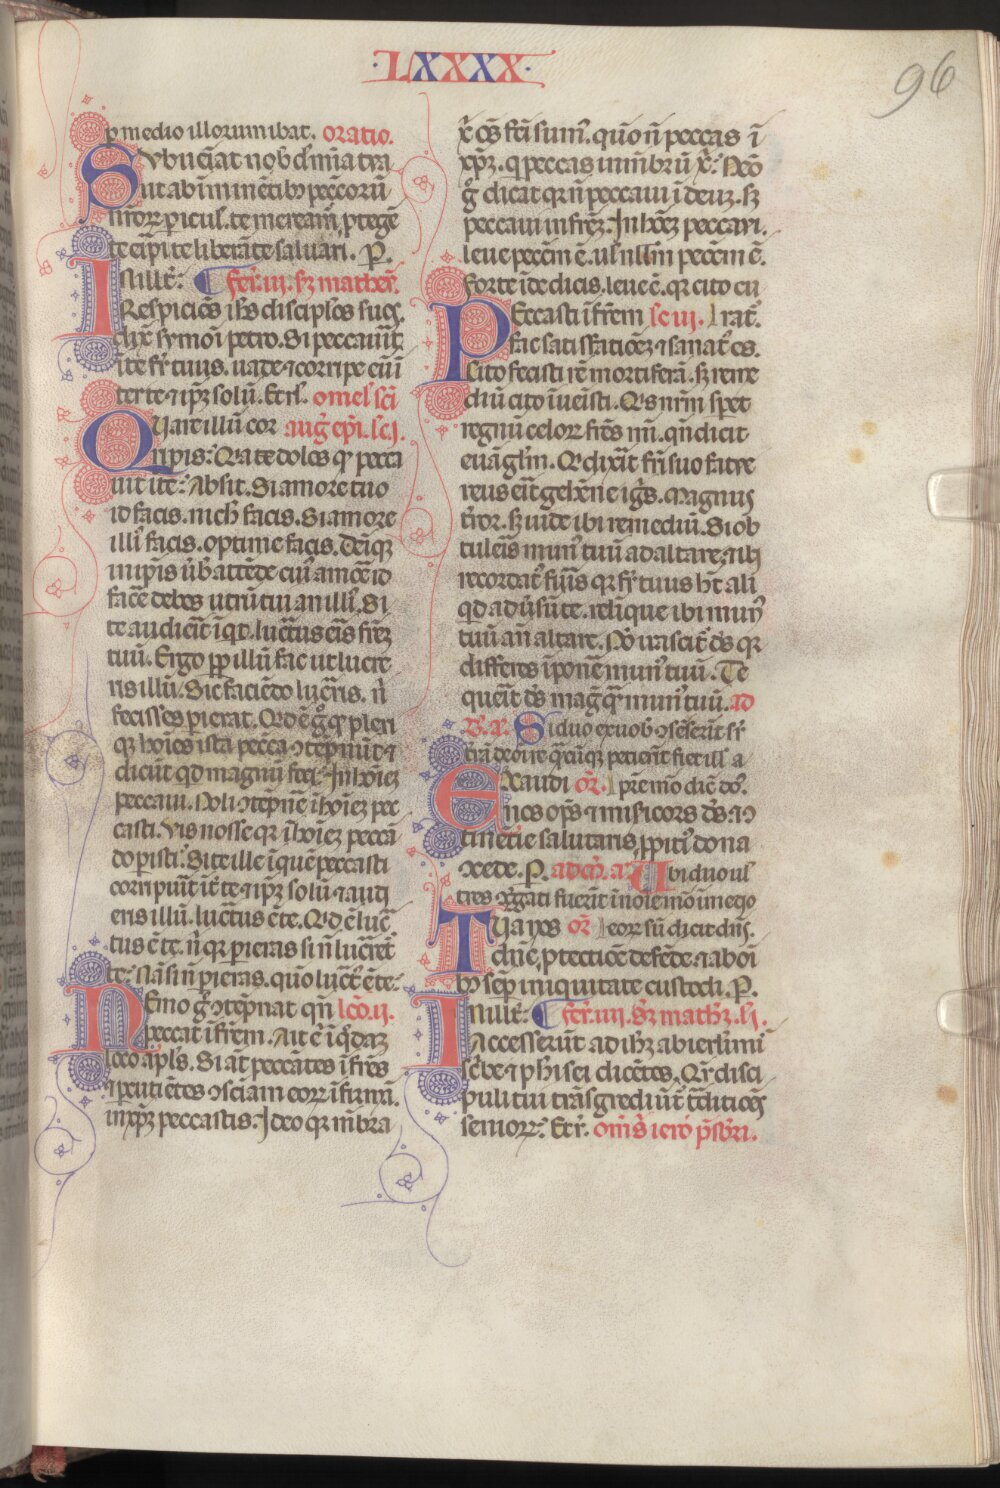 ·LXXXX·
96
p medio illorum ibat. oratio.
Subueniat nob dn̄e mīa tua
ut ab īminētib peccorū
nr̄oꝝ pericul. te meream̄ ptegēte
te eripi te liberāte saluari. P.
In ill t̄. fer. iii. sꝫ mathe.
Respiciēs ihs discipulos suos.
dix̄ symoni petro. Si peccauit̄
ī te fr̄ tuus. uade ⁊ corripe eū ī
ter te ⁊ ip̄ꝫ solū. Et rl. omel sc̄i
Quare illū cor aug ep̄i. lc̄ i.
ripis? Quia te doles qꝫ pecca
uit ī te? Absit. Si amore tuo
id facis. nich facis. Si amore
illi facis. optime facis. Deniqꝫ
in ip̄is ūb attēde cui amōe id
facē debes utrū tui an illi. Si
te audierit īqt. lucratus eris frēꝫ
tuū. Ergo pp illū fac ut lucre
ris illū. Sic faciēdo lucraris. n̄
fecisses pierat. Qd ē g qꝫ pleri
qꝫ hoīes ista pecca ↄtēpnūt ⁊
dicūt qd magnū feci? In hoīeꝫ
peccaui. Noli ↄtēpnē ī hoīeꝫ pec
casti. Vis nosse qꝛ ī hoīeꝫ peccā
do piisti? Si te ille ī quē peccasti
corripuīt īt te ⁊ ip̄ꝫ solū ⁊ audi
eris illū. lucratus ē te. Qd ē lucra
tus ē te. n̄ qꝛ pieras si n̄ lucrēt
te? Nā si n̄ pieras. quō lucrat̄ ē te?
Nemo g ↄtēpnat qn̄ lcō. ii.
peccat ī frēm. Ait .n. ī qdaꝫ
loco aplus. Si aūt peccātes ī frēs
⁊ pcutiētes ↄsciam eoꝝ ifirmā.
in xp̄ꝫ peccastis. Ideo qꝛ mēbra
x̄ oēs fc̄i sum̄. quō n̄ peccas ī
xp̄ꝫ. q peccas in mēbrū x̄? Nēo
g dicat qꝛ n̄ peccaui ī deuꝫ. sꝫ
peccaui in frēꝫ. In hoēꝫ peccaui.
leue peccm̄ ē. ul nllm̄ peccm̄ ē.
Forte īde dicis. leue ē. qꝛ cito cu
Peccasti ī frēm lc̄ iii. rat.
fac satisfatiōeꝫ ⁊ sanat̄ es.
Cito fecisti rē mortiferā. sꝫ reme
diū cito īuēisti. Qs nr̄m speret
regnū celoꝝ frēs mi. qn̄ dicit
euāglm̄. Qi dixīt fr̄i suo fatue
reus erit gehēne ignis. Magnus
t̄ror. sꝫ uide ibi remediū. Si ob
tuleris munꝰ tuū ad altare. ⁊ ibi
recordat̄ fueris qꝛ fr̄ tuus ht̄ ali
qd aduersū te. relique ibi munꝰ
tuū ante altare. Nō irascit̄ ds qꝛ
differes īponē munꝰ tuū. Te
querit ds magis qꝫ munꝰ tuū. ad
b. a. Si duo ex uob ↄsenserīt sr̄
trā de oi re quāciqꝫ petierīt fiet ill a
Exaudi or̄. pre mo dicit ds.
nos ops ⁊ misicors ds. ⁊ ↄ
tinētie salutaris. ppiti dona
ↄcede. P. ad m̄. a. Ubi duo ul
tres ↄgati fuerīt ī noīe mō in meo
Tua nos or̄. eoꝝ sū dicit dn̄s.
dn̄e, ptectiōe defēde. ⁊ ab oī
b semp iniquitate custodi. P.
In ill t̄. fer. iiii. Sꝫ matheꝫ. li.
Accesserūt ad ihꝫ ab ierlimi
scribe ⁊ pharisei dicētes. Qr̄ disci
puli tui trāsgrediūt̄ traditiōes
senioꝝ? Et r. Omis iero p̄sbri.